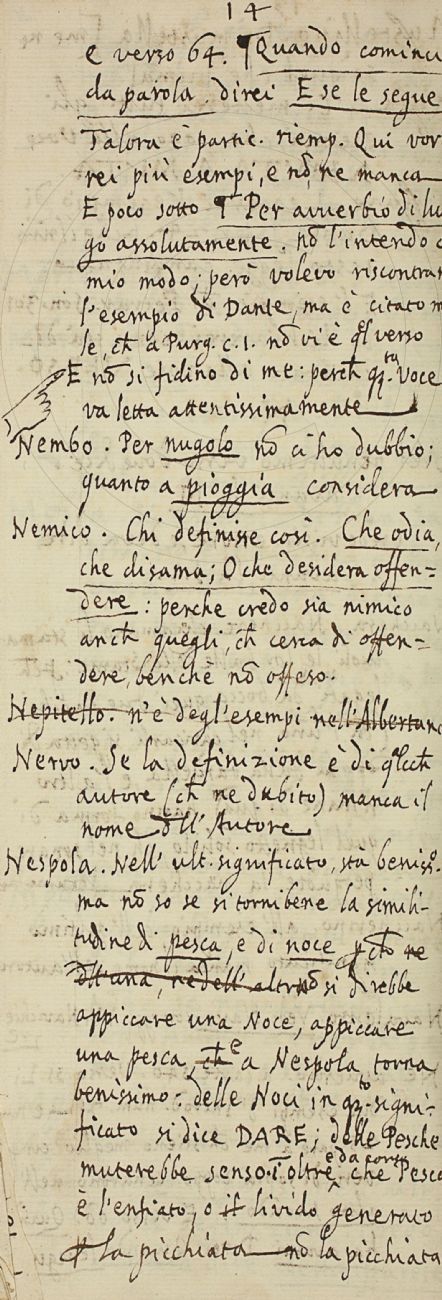 14
e verso 64. ¶ Quando cominci
da parola. direi E se le segue
Talora è partic. riemp. Qui vor
rei più esempi, e nō ne manca
E poco sotto ¶ Per avverbio di luo
go assolutamente. nō l'intendo
mio modo; però volevo riscontrar
l'esempio di Dante, ma è citato m
le, ch̄ a Purg. c. 1. nō vi è ql verso
E nō si fidino di me: perch̄ qsta voce
va letta attentissimamente
Nembo. Per nugolo nō ci ho dubbio;
quanto a pioggia considera
Nemico. Chi definisse così. Che odia,
che disama; O che desidera offen=
dere: perche credo sia nimico
anch̄ quegli, ch̄ cerca di offen=
dere, benchè nō offeso.
Nepitello. n'è degl'esempi nell'Albertano
Nervo. Se la definizione è di qlch̄
autore (ch̄ ne dubito) manca il
nome dll'Autore
Nespola. Nell' ult. significato, stà beniss.o
ma nō so se si torni bene la simili-
tudine di pesca, e di noce
dll'una, nè dell'altra nō si direbbe
appiccare una Noce, appiccare
una pesca, ch̄ e a Nespola torna
benissimo: delle Noci in qsto signi-
ficato si dice DARE; delle Pesche
muterebbe senso: Ī oltre che Pesca
è l'enfiato, o il livido generato
la picchiata nō la picchiata